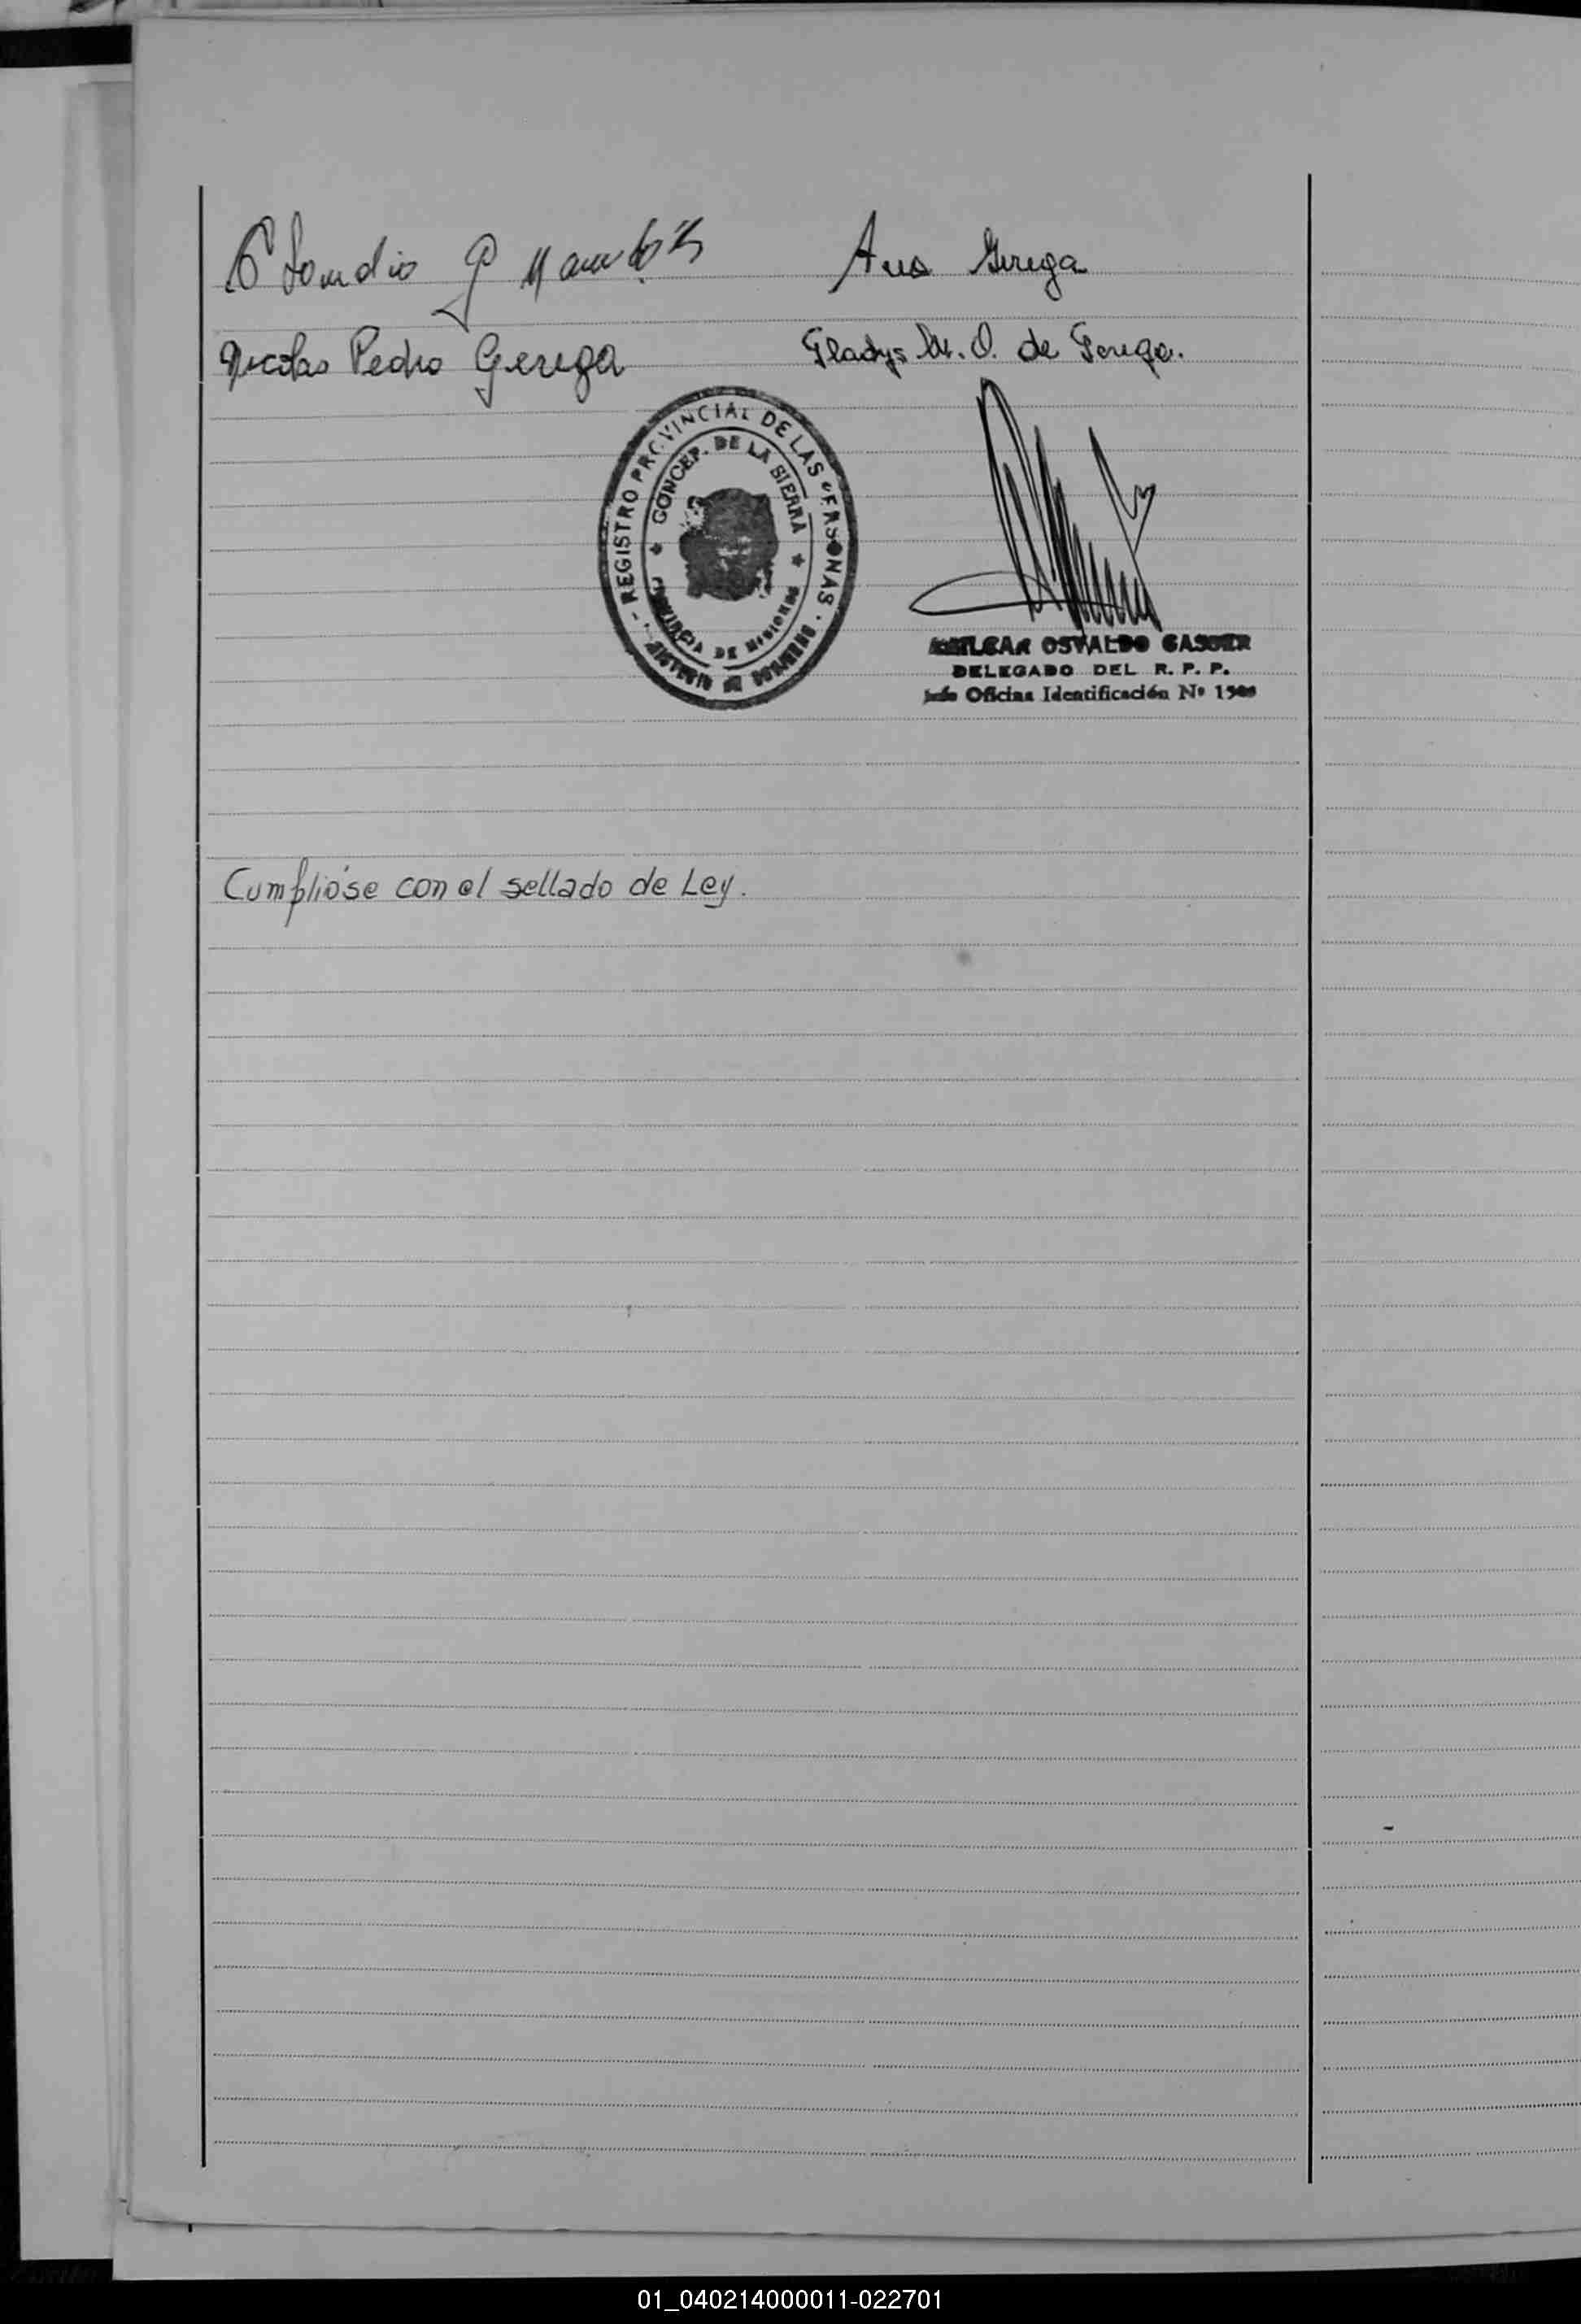 Ana Gerega
Nicolas Pedro Gerega
Gladys M. O. de Gerega.
REGISTRO PROVINCIAL DE LAS PERSONAS
CONCEP. DE LA SIERRA
PROVINCIA DE MISIONES
MINISTERIO DE GOBIERNO
OSVALDO
DELEGADO DEL R. P. P.
Jefe Oficina Identificación Nº
Cumplióse con el sellado de Ley.
01_040214000011-022701